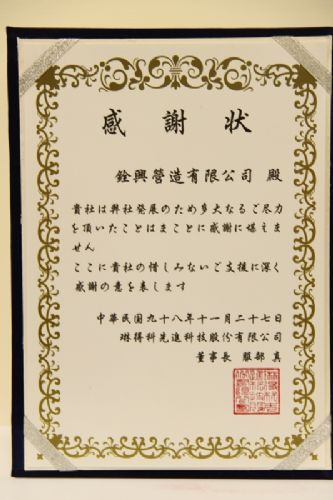 感謝状
銓興營造有限公司 殿
貴社は弊社発展のため多大なるご尽力
を頂いたことはまことに感謝に堪えま
せん
ここに貴社の惜しみないご支援に深く
感謝の意を表します
中華民国九十八年十一月二十七日
琳得科先進科技股份有限公司
董事長 服部 真